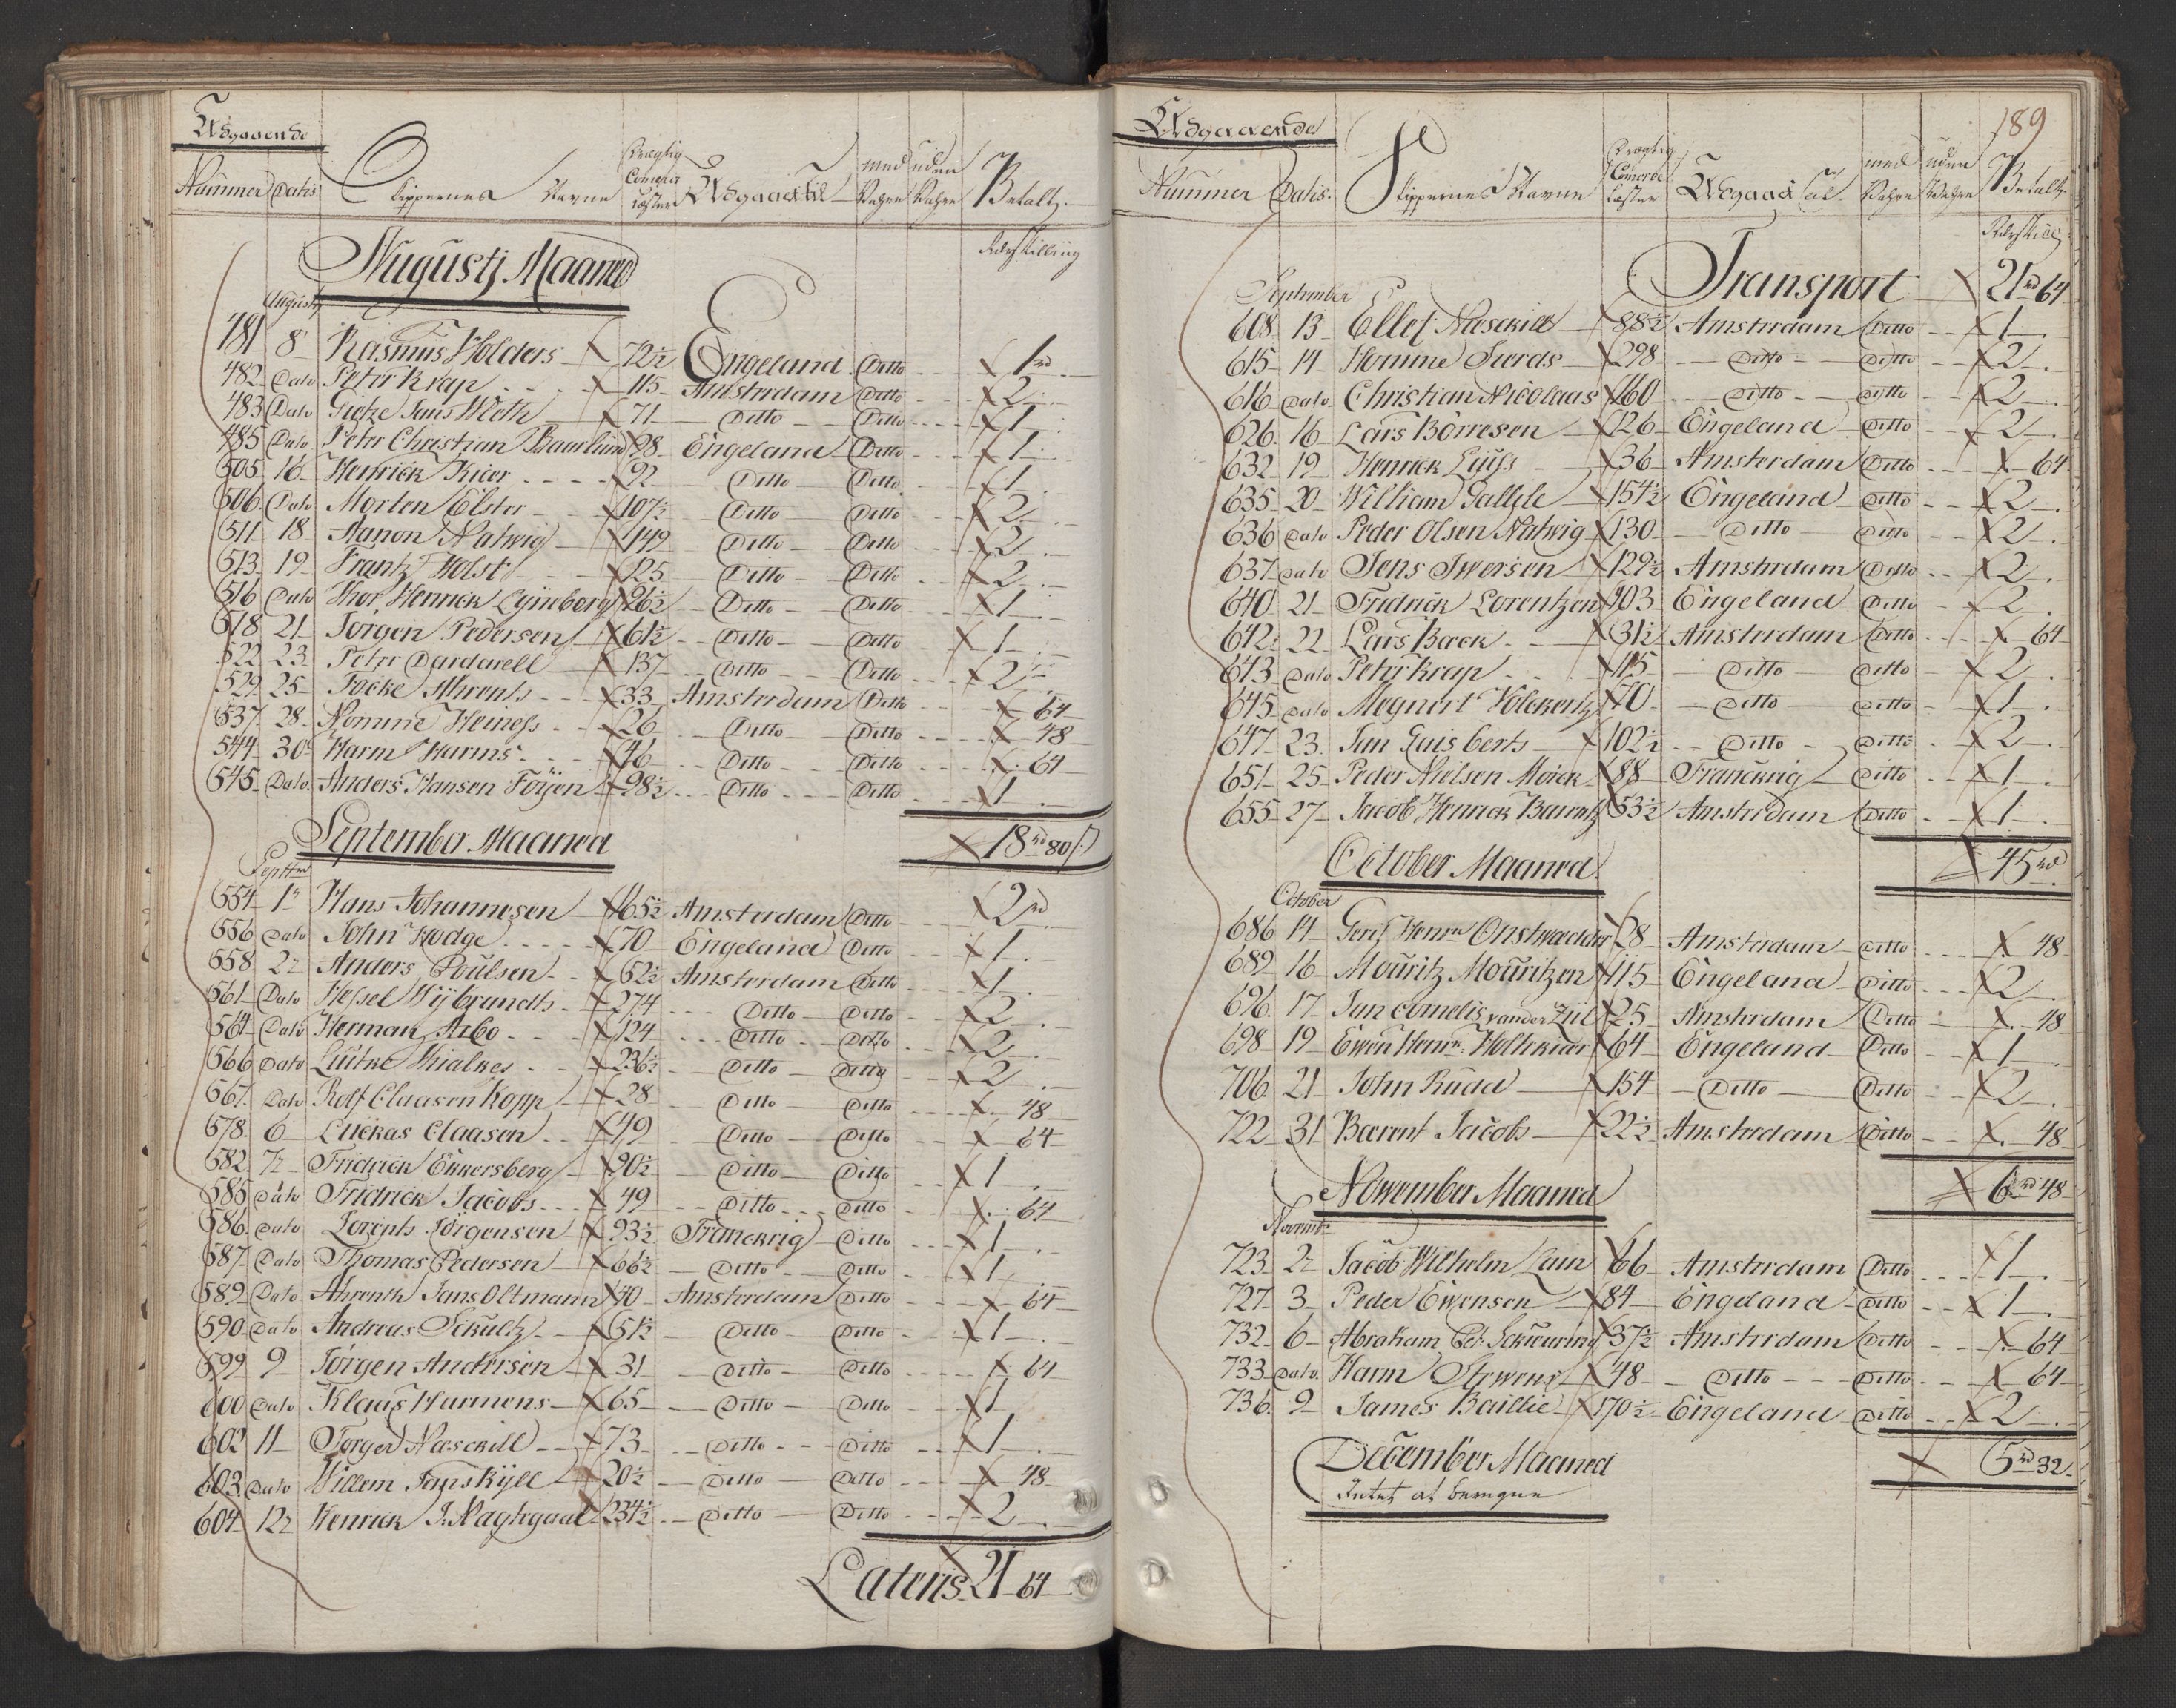 Udgaaende
Nummer Datis Skippernes Navne Drægtig Comerce Læster Udgaaed til med Vahre uden Vahre Betalt
Rdr Skilling
Augustj Maaned
Augustj
481 8 Rasmus Holders 72½ Engeland Ditto 1 rd
482 Dato Peter Krap 115 Amsterdam Ditto 2
483 Dato Gietze Jans Weth 71 Ditto Ditto 1
485 Dato Peter Christian Buurlund 98 Engeland Ditto 1
505 16 Henrick Kier 92 Ditto Ditto 1
506 Dato Morten Elster 107½ Ditto Ditto 2
511 18 Aanon Natwig 149 Ditto Ditto 2
513 19 Frantz Holst 125 Ditto Ditto 2
516 Dato Thor Henrick Lÿneborg 96½ Ditto Ditto 1
518 21 Jørgen Pedersen 61½ Ditto Ditto 1
522 23 Peter Dardarell 137 Ditto Ditto 2
529 25 Focke Ahrents 33 Amsterdam Ditto 64
537 28 Nomme Heiness 26 Ditto Ditto 48
544 30 Harm Harms 46 Ditto Ditto 64
545 Dato Anders Hansen Föÿen 98½ Ditto Ditto 1
18 rd 80 s
September Maaned
Septbr
554 1 Hans Johannesen 165½ Amsterdam Ditto 2 rd
556 Dato John Hodge 70 Engeland Ditto 1
558 2 Anders Poulsen 52½ Amsterdam Ditto 1
561 Dato Hessel Wÿbrandts 274 Ditto Ditto 2
564 Dato Herman Arbo 124 Ditto Ditto 2
566 Dato Lütke Hialkes 236½ Ditto Ditto 2
567 Dato Rolf Claasen Kopp 28 Ditto Ditto 48
578 6 Luckas Claasen 49 Ditto Ditto 64
582 7 Fridrick Eckersberg 90½ Ditto Ditto 1
585 Dato Fridrick Jacobs 49 Ditto Ditto 64
586 Dato Lorents Jörgensen 93½ Franckrig Ditto 1
587 Dato Thomas Pedersen 66½ Ditto Ditto 1
589 Dato Ahrenth Jans Oltmann 40 Amsterdam Ditto 64
590 Dato Andreas Schultz 51½ Ditto Ditto 1
599 9 Jörgen Andersen 31 Ditto Ditto 64
600 Dato Klaas Harmens 65 Ditto Ditto 1
602 11 Torger Næsckill 73 Ditto Ditto 1
603 Dato Willem Jans Kÿll 20½ Ditto Ditto 48
604 12 Henrick J. Nagtegaal 234½ Ditto Ditto 2
Lateris 21 64
189
Udgaaende
Nummer Datis Skippernes Navne Drægtig Comerce Læster Udgaaed til med Vahre uden Vahre Betalt
Rdr Skill
Transport 21 rd 64
September
608 13 Ellef Næsckill 88½ Amsterdam Ditto 1
615 14 Homme Suerds 298 Ditto Ditto 2
616 Dato Christian Nicolaas 160 Ditto Ditto 2
626 16 Lars Börresen 126 Engeland Ditto 2
632 19 Henrick Luÿs 36 Amsterdam Ditto 64
635 20 William Gallile 154½ Engeland Ditto 2
636 Dato Peder Olsen Natwig 130 Ditto Ditto 2
637 Dato Jens Iwersen 129½ Amsterdam Ditto 2
640 21 Fridrick Lorentzen 103 Engeland Ditto 2
642 22 Lars Back 31½ Amsterdam Ditto 64
643 Dato Peter Krap 115 Ditto Ditto 2
645 Dato Megnert Volckertz 70 Ditto Ditto 1
647 23 Jan Gaisberts 102½ Ditto Ditto 2
651 25 Peder Nielsen Mörck 88 Franckrig Ditto 1
655 27 Jacob Henrick Barentz 53½ Amsterdam Ditto 1
45 rd
October Maaned
October
686 14 Gerit Henrn Onstwedder 28 Amsterdam Ditto 48
689 16 Mouritz Mouritzen 115 Engeland Ditto 2
696 17 Jan Cornelis van der Zÿl 25 Amsterdam Ditto 48
698 19 Ewen Henrn Holtkiær 64 Engeland Ditto 1
706 21 John Rudd 154 Ditto Ditto 2
722 31 Barent Jacobs 22½ Amsterdam Ditto 48
6 rd 48
November Maaned
Novembr
723 2 Jacob Wilhelm Lam 66 Amsterdam Ditto 1
727 3 Peder Ewensen 84 Engeland Ditto 1
732 6 Abraham Schuuring 37½ Amsterdam Ditto 64
733 Dato Harm Stewens 48 Ditto Ditto 64
736 9 James Baillie 170½ Engeland Ditto 2
5 rd 32
December Maaned
Intet at beregne